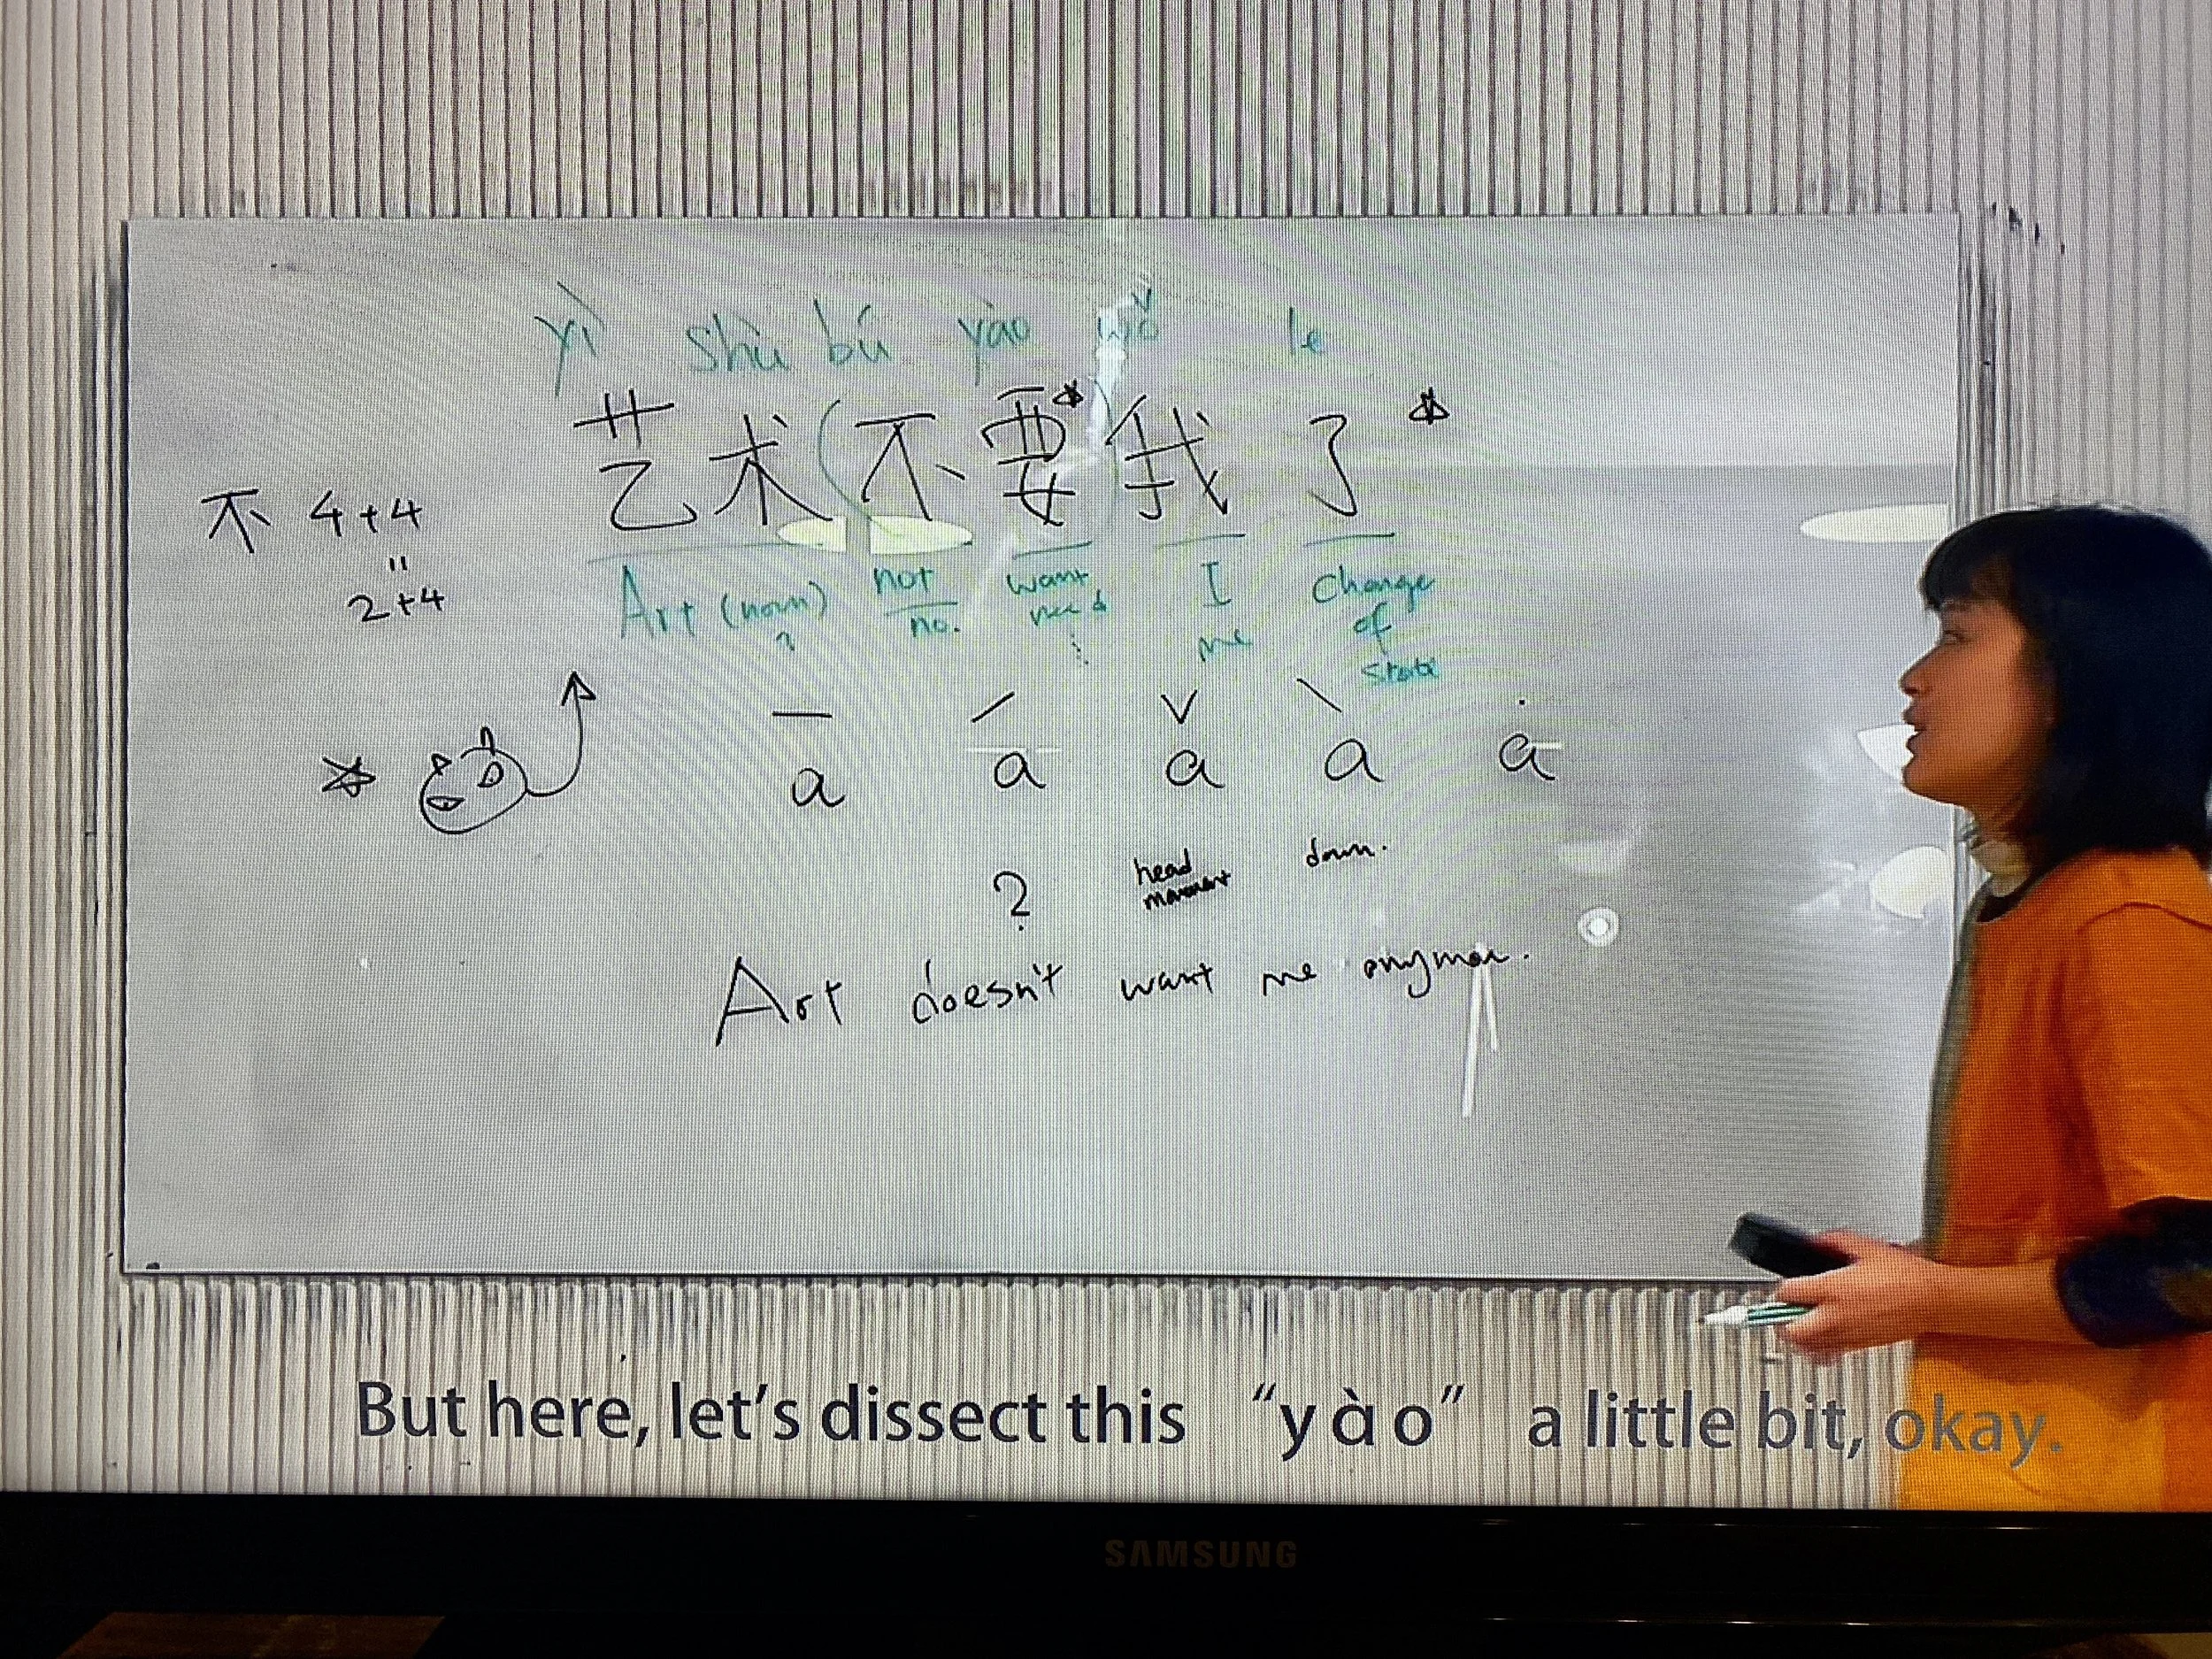 yì shù bú yào wǒ le
艺术(不要*)我了*
不 4+4
=
2+4
Art (noun) not want I Change
? no. need me of
state
— ˊ ˇ ˋ ·
a a a a a
? head down.
movement
Art doesn't want me anymore.
But here, let's dissect this “yào” a little bit, okay.
SAMSUNG